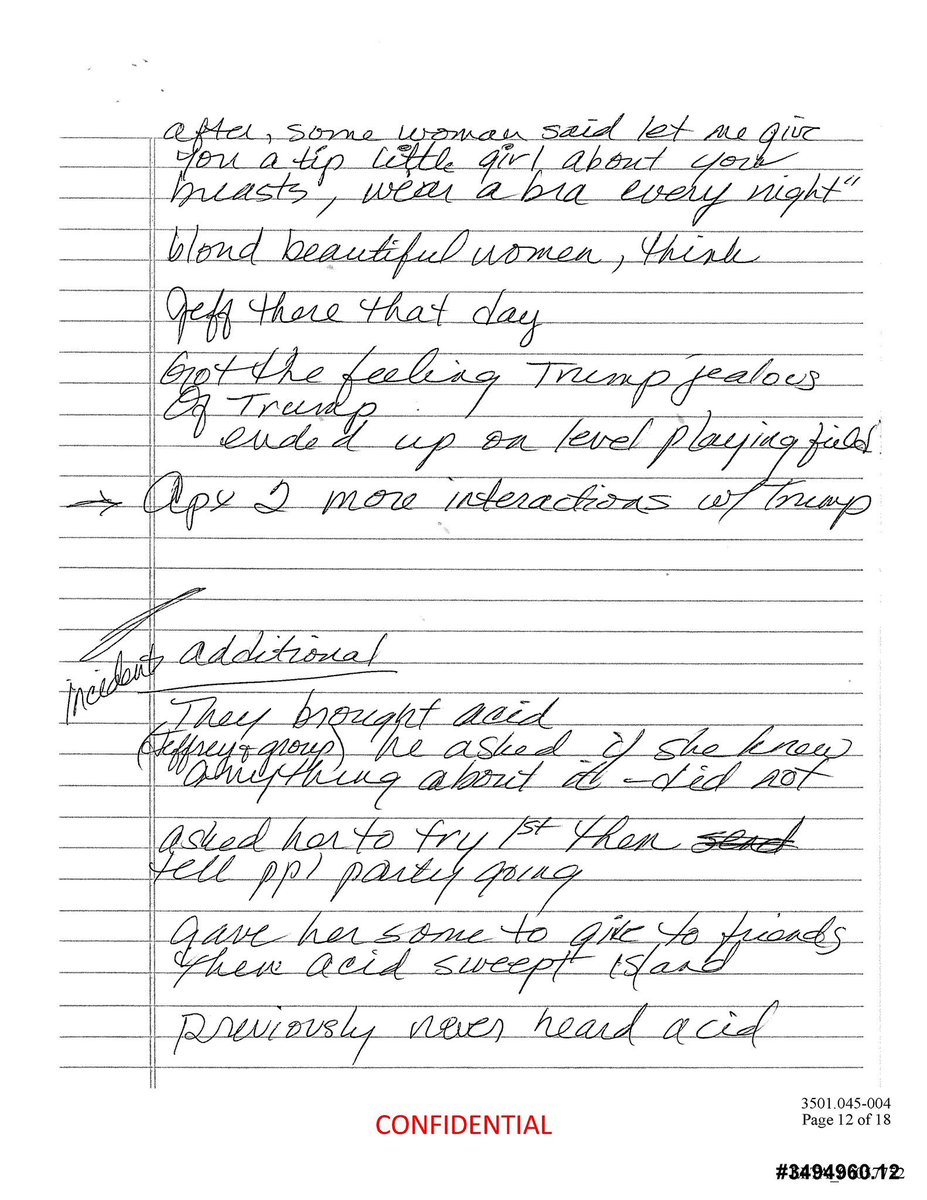 after, some woman said let me give
you a tip little girl about your
breasts, wear a bra every night"
blond beautiful women, think
Jeff there that day
Got the feeling Trump jealous
Of Trump
ended up on level playing field
→ Apx 2 more interactions w/ Trump
incident additional
They brought acid
(Jeffrey + group) he asked if she knew
anything about it - did not
asked her to try 1st then send
tell ppl party going
gave her some to give to friends
then acid swept island
previously never heard acid
3501.045-004
Page 12 of 18
CONFIDENTIAL
#3494960.12